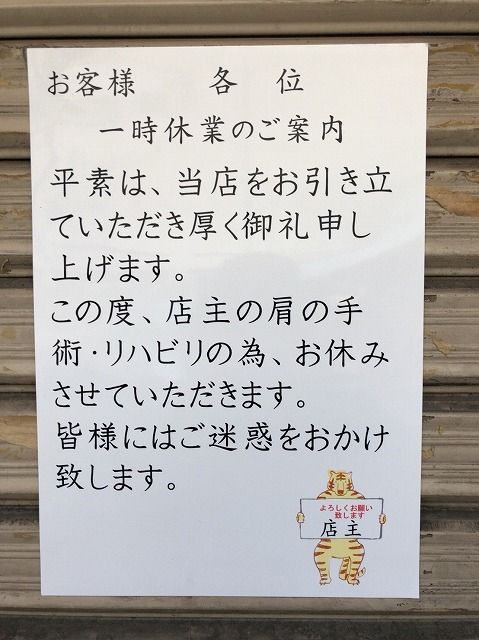 お客様　　各　位
一時休業のご案内
平素は、当店をお引き立
ていただき厚く御礼申し
上げます。
この度、店主の肩の手
術・リハビリの為、お休み
させていただきます。
皆様にはご迷惑をおかけ
致します。
よろしくお願い
致します
店主